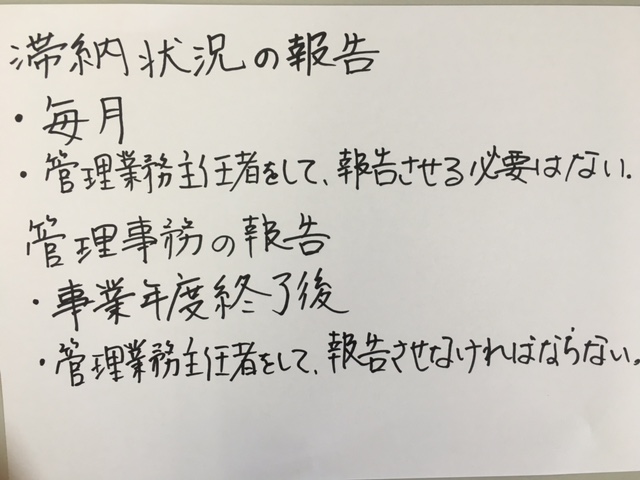 滞納状況の報告
・毎月
・管理業務主任者をして、報告させる必要はない.
管理事務の報告
・事業年度終了後
・管理業務主任者をして、報告させなければならない。